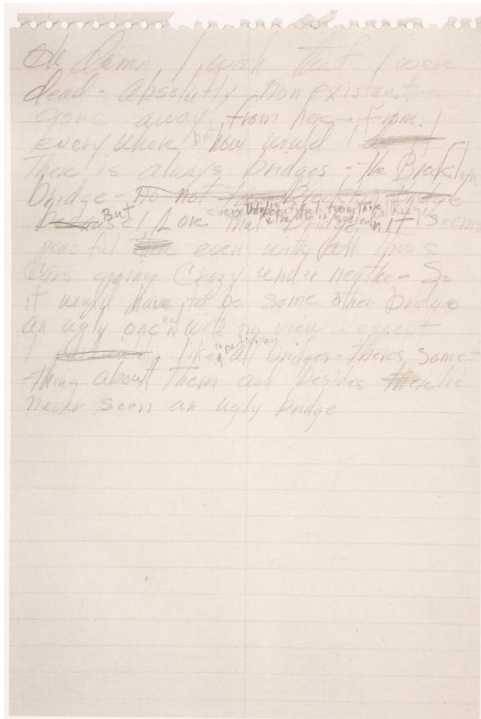 Oh damn I wish that I were
dead - absolutly non existant -
gone away from here - from
everywhere but how would I
There is always bridges - the Brooklyn
bridge - no not the Brooklyn Bridge
because But I Love that bridge (everything is beautiful from there & the air is so clean) it seems
peaceful there even with all those
cars going crazy under neathe - So
it would have to be some other bridge
an ugly one and with no view - except
I like in particular all bridges - theres some-
-thing about them and besides I've
never seen an ugly bridge